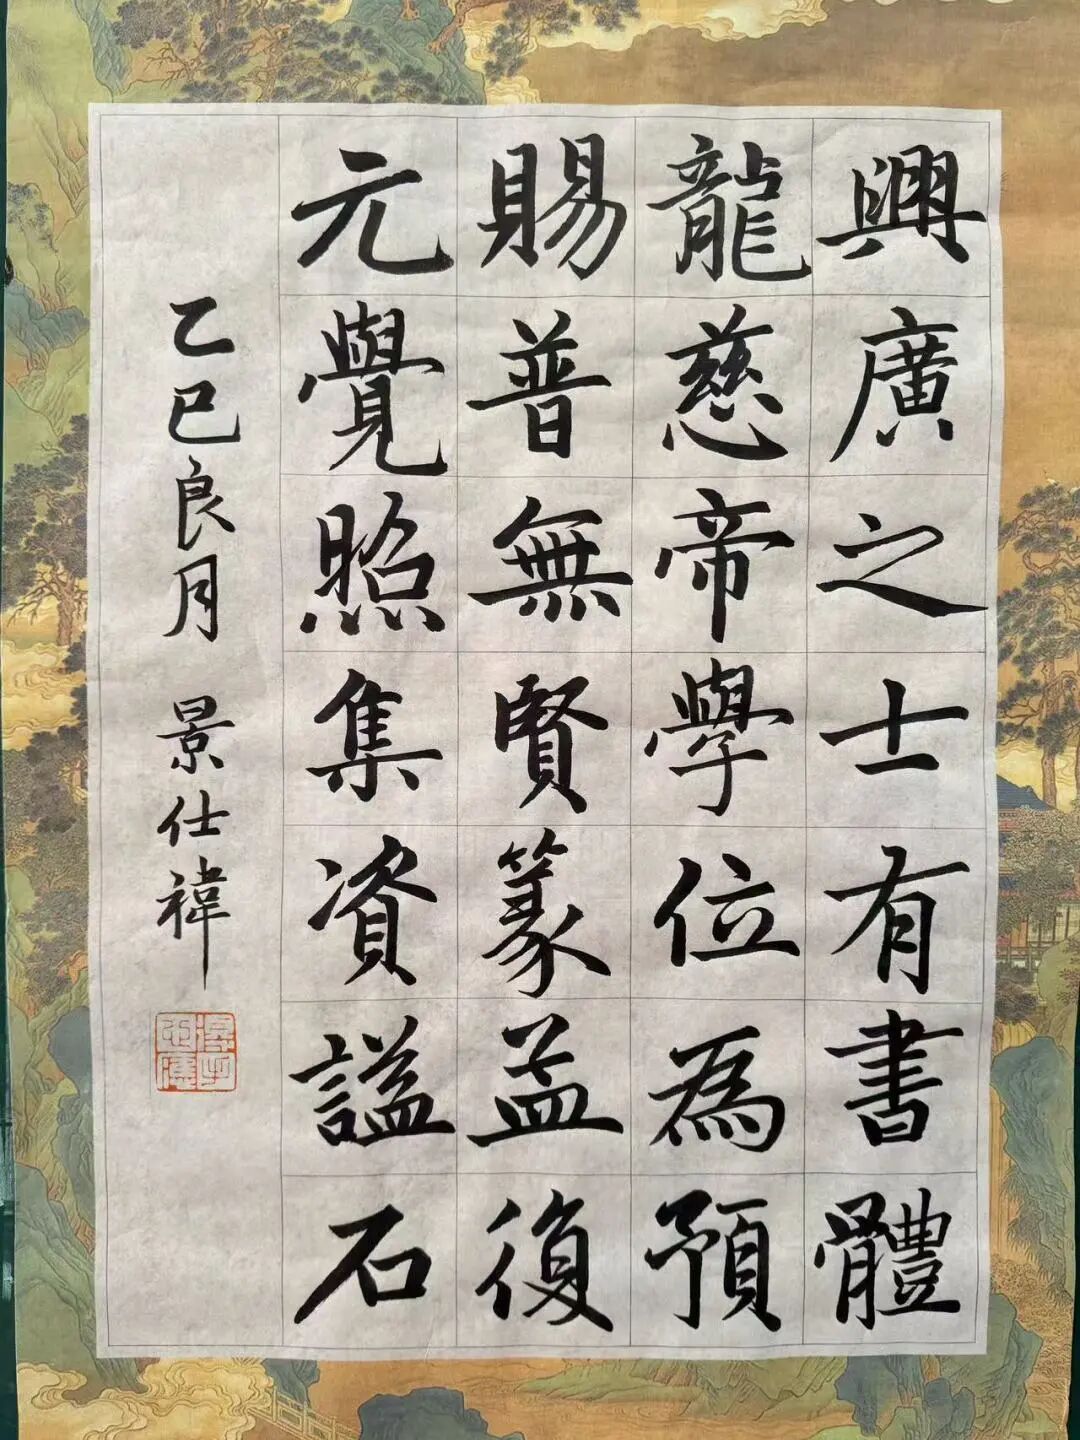 興廣之士有書體
龍慈帝學位為預
賜普無賢篆孟復
元覺照集資謚石
乙巳良月 景仕褘